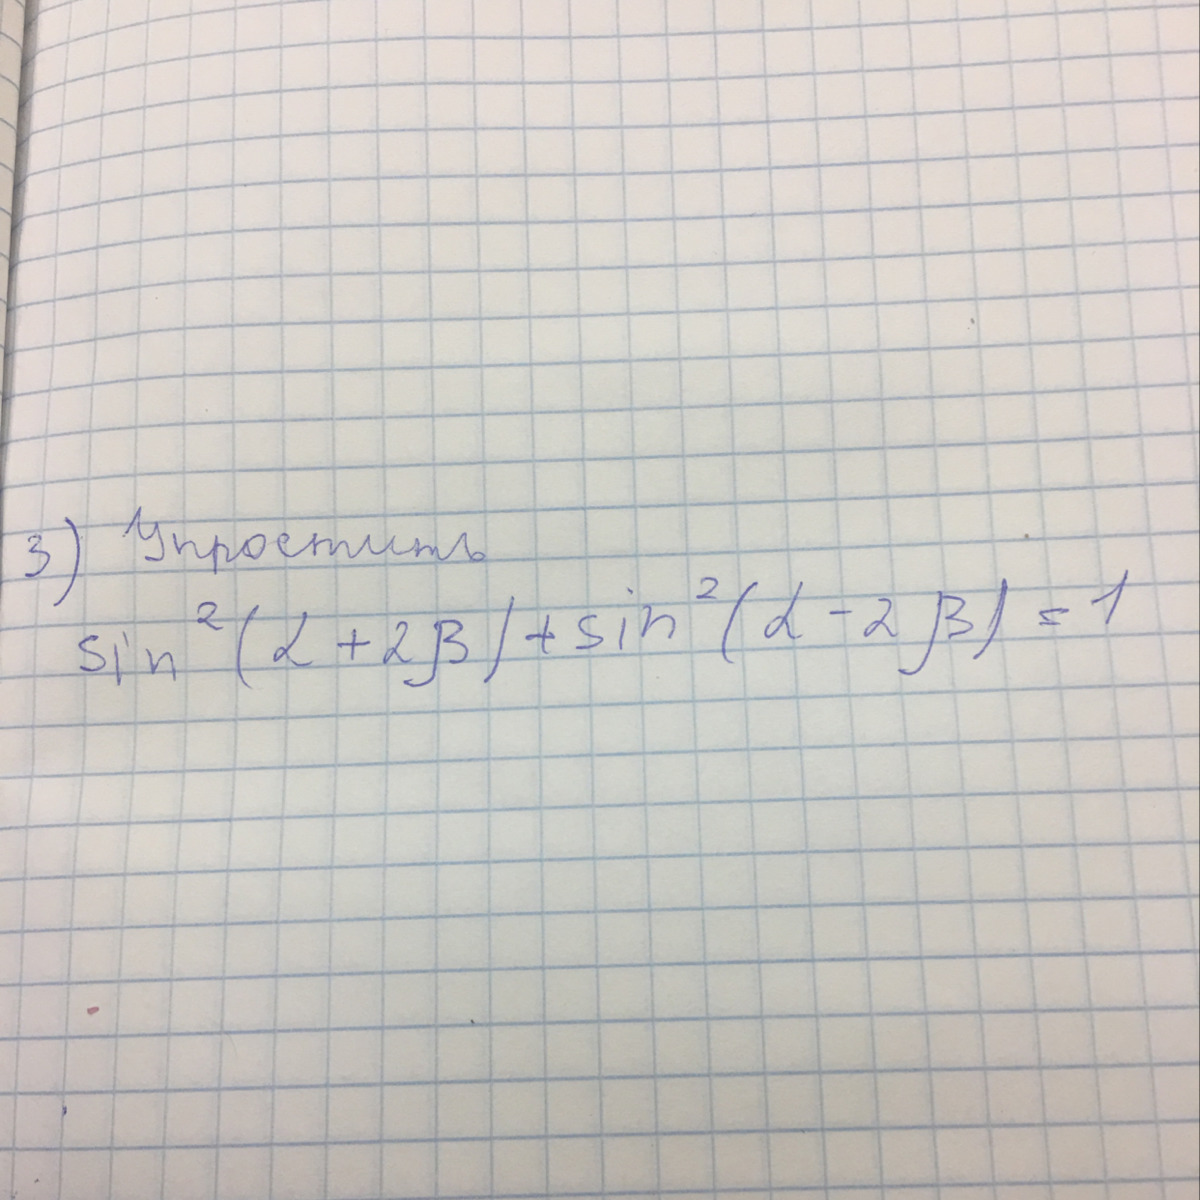 3) Упростить
sin²(α+2β)+sin²(α-2β)=1